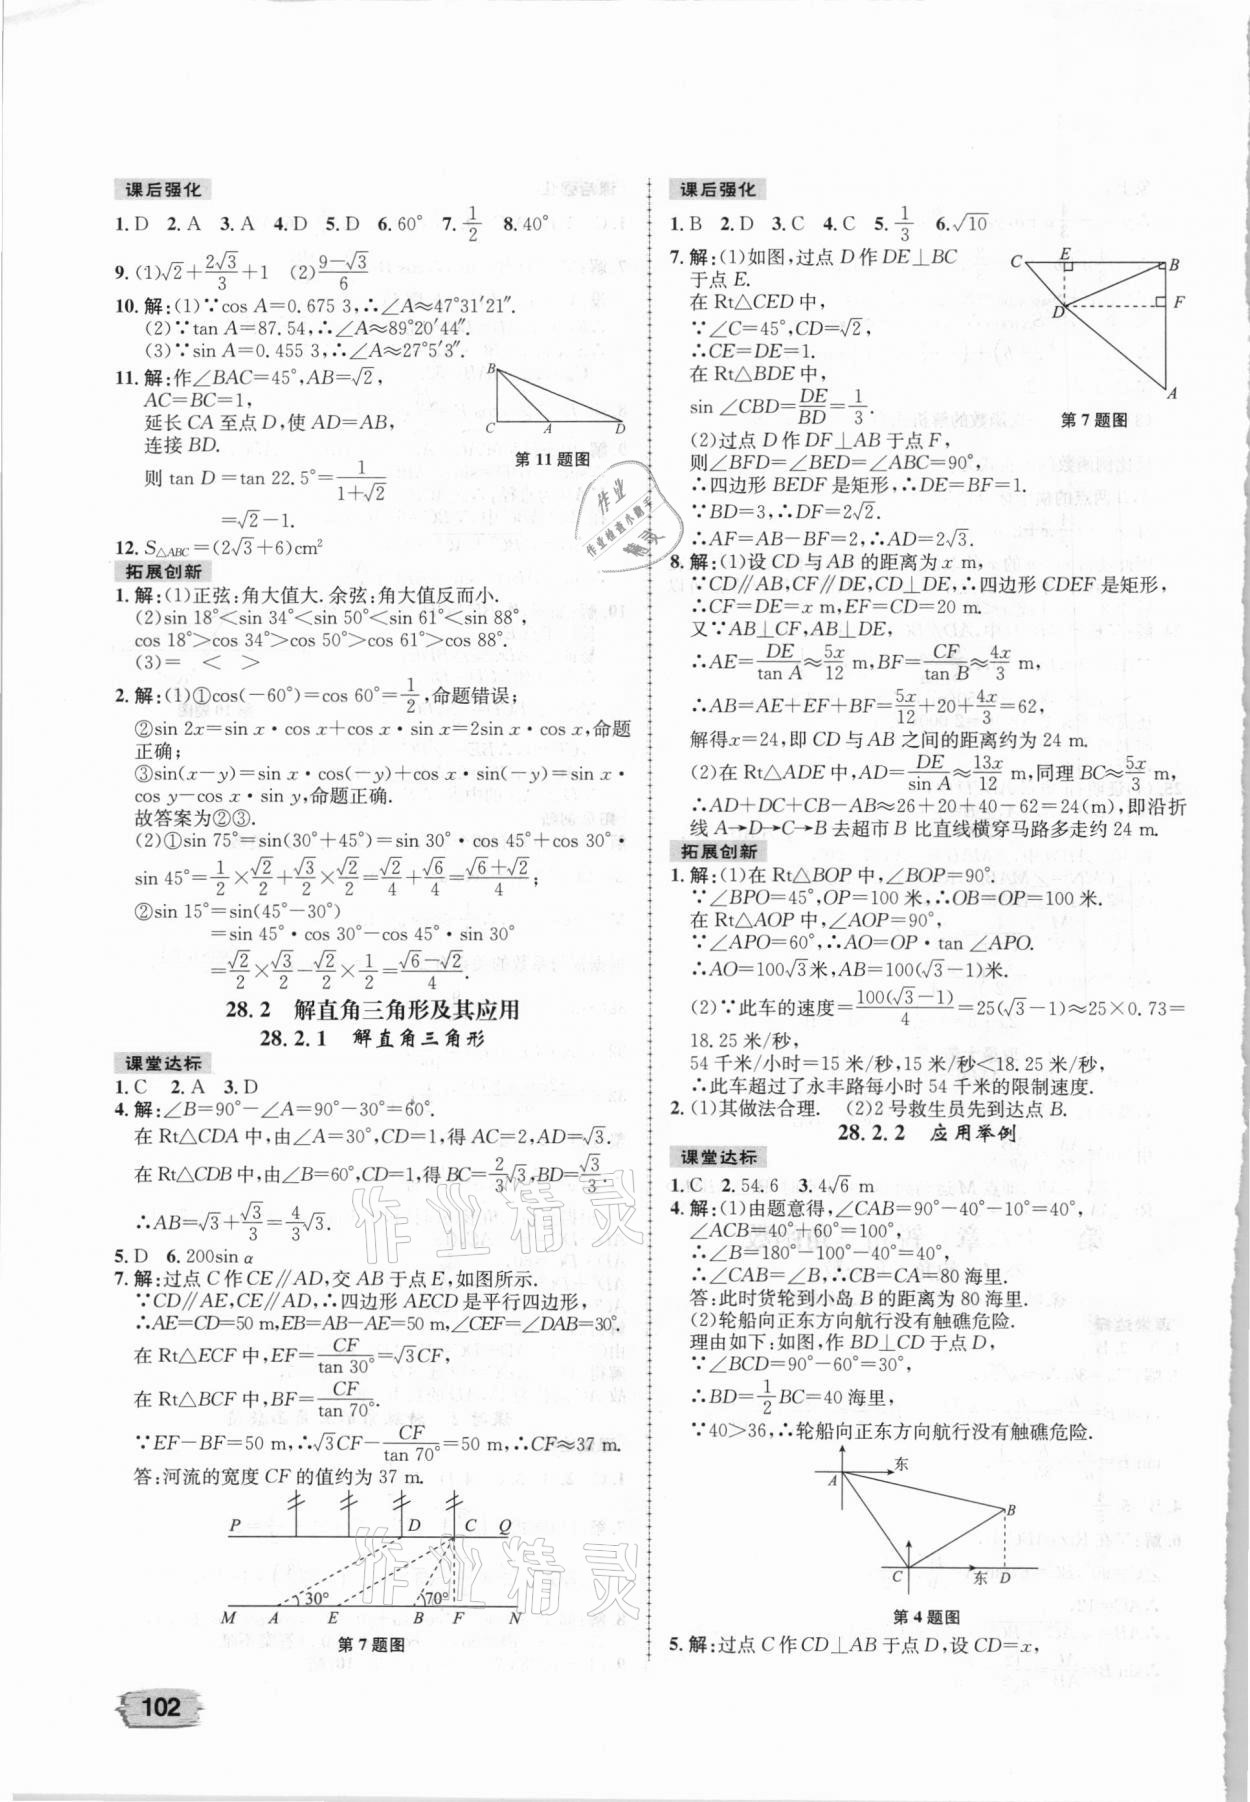 课后强化
1. D 2. A 3. A 4. D 5. D 6. 60° 7. 1/2 8. 40°
9. (1)√2+2√3/3+1 (2)(9-√3)/6
10. 解:(1)∵cos A=0.675 3,∴∠A≈47°31′21″.
(2)∵tan A=87.54,∴∠A≈89°20′44″.
(3)∵sin A=0.455 3,∴∠A≈27°5′3″.
11. 解:作∠BAC=45°,AB=√2,
AC=BC=1,
延长 CA 至点 D,使 AD=AB,
连接 BD.
则 tan D=tan 22.5°=1/(1+√2)
=√2-1.
B
C A D
第 11 题图
12. S△ABC=(2√3+6)cm²
拓展创新
1. 解:(1)正弦:角大值大. 余弦:角大值反而小.
(2)sin 18°<sin 34°<sin 50°<sin 61°<sin 88°,
cos 18°>cos 34°>cos 50°>cos 61°>cos 88°.
(3)= < >
2. 解:(1)①cos(-60°)=cos 60°=1/2,命题错误;
②sin 2x=sin x·cos x+cos x·sin x=2sin x·cos x,命题
正确;
③sin(x-y)=sin x·cos(-y)+cos x·sin(-y)=sin x·
cos y-cos x·sin y,命题正确.
故答案为②③.
(2)①sin 75°=sin(30°+45°)=sin 30°·cos 45°+cos 30°·
sin 45°=1/2×√2/2+√3/2×√2/2=√2/4+√6/4=(√6+√2)/4;
②sin 15°=sin(45°-30°)
=sin 45°·cos 30°-cos 45°·sin 30°
=√2/2×√3/2-√2/2×1/2=(√6-√2)/4.
28.2 解直角三角形及其应用
28.2.1 解直角三角形
课堂达标
1. C 2. A 3. D
4. 解:∠B=90°-∠A=90°-30°=60°.
在 Rt△CDA 中,由∠A=30°,CD=1,得 AC=2,AD=√3.
在 Rt△CDB 中,由∠B=60°,CD=1,得 BC=2/3√3,BD=√3/3.
∴AB=√3+√3/3=4/3√3.
5. D 6. 200sin α
7. 解:过点 C 作 CE∥AD,交 AB 于点 E,如图所示.
∵CD∥AE,CE∥AD,∴四边形 AECD 是平行四边形,
∴AE=CD=50 m,EB=AB-AE=50 m,∠CEF=∠DAB=30°.
在 Rt△ECF 中,EF=CF/tan 30°=√3CF,
在 Rt△BCF 中,BF=CF/tan 70°.
∵EF-BF=50 m,∴√3CF-CF/tan 70°=50 m,∴CF≈37 m.
答:河流的宽度 CF 的值约为 37 m.
P D C Q
30° 70°
M A E B F N
第 7 题图
102
课后强化
1. B 2. D 3. C 4. C 5. 1/3 6. √10
7. 解:(1)如图,过点 D 作 DE⊥BC
于点 E.
在 Rt△CED 中,
∵∠C=45°,CD=√2,
∴CE=DE=1.
在 Rt△BDE 中,
sin ∠CBD=DE/BD=1/3.
C E B
F
D
A
第 7 题图
(2)过点 D 作 DF⊥AB 于点 F,
则∠BFD=∠BED=∠ABC=90°,
∴四边形 BEDF 是矩形,∴DE=BF=1.
∵BD=3,∴DF=2√2.
∴AF=AB-BF=2,∴AD=2√3.
8. 解:(1)设 CD 与 AB 的距离为 x m,
∵CD∥AB,CF∥DE,CD⊥DE,∴四边形 CDEF 是矩形,
∴CF=DE=x m,EF=CD=20 m.
又∵AB⊥CF,AB⊥DE,
∴AE=DE/tan A≈5x/12 m,BF=CF/tan B≈4x/3 m,
∴AB=AE+EF+BF=5x/12+20+4x/3=62,
解得x=24,即 CD 与 AB 之间的距离约为 24 m.
(2)在 Rt△ADE 中,AD=DE/sin A≈13x/12 m,同理 BC≈5x/3 m,
∴AD+DC+CB-AB≈26+20+40-62=24(m),即沿折
线 A→D→C→B 去超市 B 比直线横穿马路多走约 24 m.
拓展创新
1. 解:(1)在 Rt△BOP 中,∠BOP=90°.
∵∠BPO=45°,OP=100 米,∴OB=OP=100 米.
在 Rt△AOP 中,∠AOP=90°,
∵∠APO=60°,∴AO=OP·tan ∠APO.
∴AO=100√3米,AB=100(√3-1)米.
(2)∵此车的速度=100(√3-1)/4=25(√3-1)≈25×0.73=
18.25 米/秒,
54 千米/小时=15 米/秒,15米/秒<18.25 米/秒,
∴此车超过了永丰路每小时 54 千米的限制速度.
2. (1)其做法合理. (2)2 号救生员先到达点 B.
28.2.2 应用举例
课堂达标
1. C 2. 54.6 3. 4√6 m
4. 解:(1)由题意得,∠CAB=90°-40°-10°=40°,
∠ACB=40°+60°=100°,
∴∠B=180°-100°-40°=40°,
∴∠CAB=∠B,∴CB=CA=80 海里.
答:此时货轮到小岛 B 的距离为 80 海里.
(2)轮船向正东方向航行没有触礁危险.
理由如下:如图,作 BD⊥CD 于点 D,
∵∠BCD=90°-60°=30°,
∴BD=1/2BC=40 海里,
∵40>36,∴轮船向正东方向航行没有触礁危险.
东
A
B
C 东 D
第 4 题图
5. 解:过点 C 作 CD⊥AB 于点 D,设 CD=x,
作业精灵
作业精灵
作业
作业检查小助手
精灵